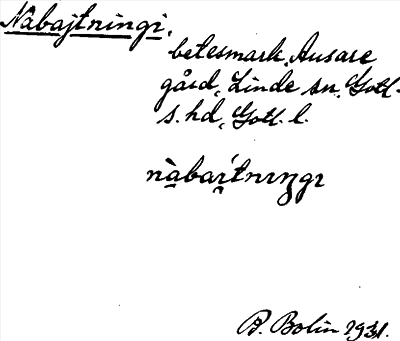 Nabajtningi,
betesmark, Ausare
gård, Linde sn, Gotl.
s. hd, Gotl. l.
nàba͕í̯tnɩŋgɩ
B. Bolin 1931.